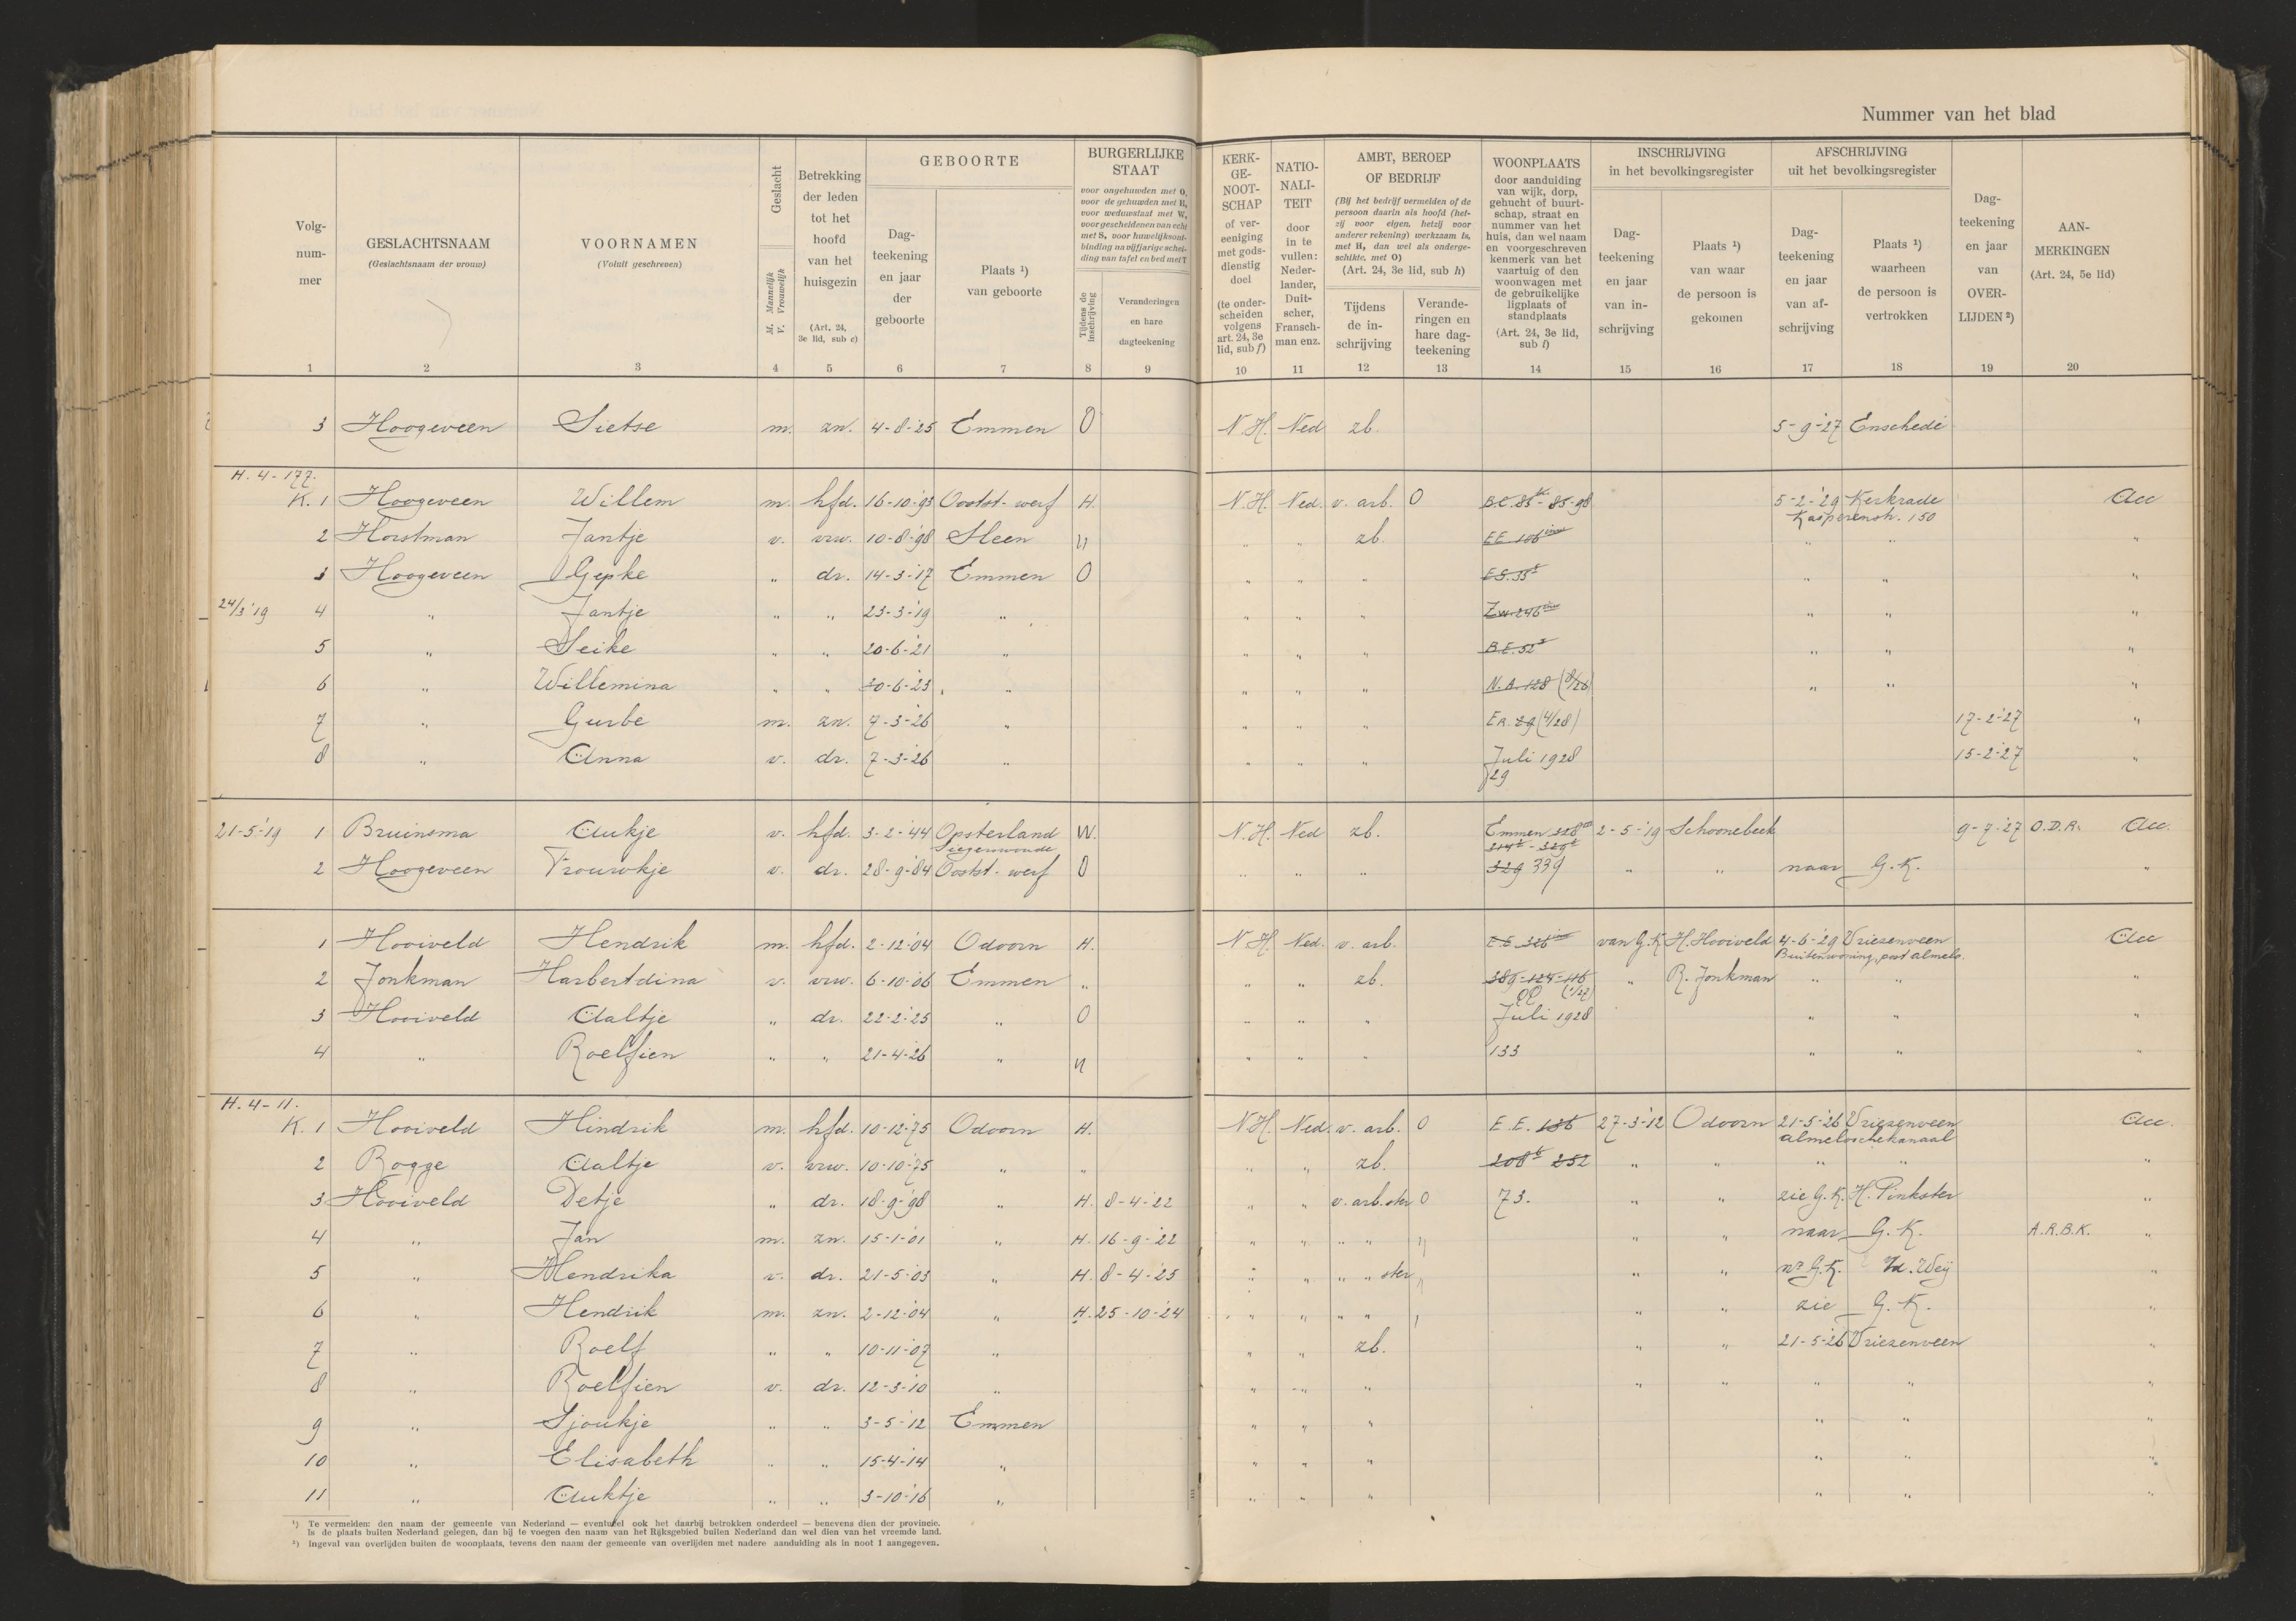 Nummer van het blad
Volg-nummer
GESLACHTSNAAM (Geslachtsnaam der vrouw)
VOORNAMEN (Voluit geschreven)
Geslacht M. Mannelijk V. Vrouwelijk
Betrekking der leden tot het hoofd van het huisgezin (Art. 24, 3e lid, sub c)
GEBOORTE
Dag-teekening en jaar der geboorte
Plaats ¹) van geboorte
BURGERLIJKE STAAT
voor ongehuwden met O, voor de gehuwden met H, voor weduwstaat met W, voor gescheidenen van echt met S, voor huwelijksont-binding na vijfjarige schei-ding van tafel en bed met T
Tijdens de inschrijving
Veranderingen en hare dagteekening
KERK-GE-NOOT-SCHAP of ver-eeniging met gods-dienstig doel (te onder-scheiden volgens art. 24, 3e lid, sub f)
NATIO-NALI-TEIT door in te vullen: Neder-lander, Duit-scher, Fransch-man enz.
AMBT, BEROEP OF BEDRIJF
(Bij het bedrijf vermelden of de persoon daarin als hoofd (het-zij voor eigen, hetzij voor anderer rekening) werkzaam is, met H, dan wel als onderge-schikte, met O) (Art. 24, 3e lid, sub h)
Tijdens de in-schrijving
Verande-ringen en hare dag-teekening
WOONPLAATS door aanduiding van wijk, dorp, gehucht of buurt-schap, straat en nummer van het huis, dan wel naam en voorgeschreven kenmerk van het vaartuig of den woonwagen met de gebruikelijke ligplaats of standplaats (Art. 24, 3e lid, sub i)
INSCHRIJVING in het bevolkingsregister
Dag-teekening en jaar van in-schrijving
Plaats ¹) van waar de persoon is gekomen
AFSCHRIJVING uit het bevolkingsregister
Dag-teekening en jaar van af-schrijving
Plaats ¹) waarheen de persoon is vertrokken
Dag-teekening en jaar van OVER-LIJDEN ²)
AAN-MERKINGEN (Art. 24, 5e lid)
1 2 3 4 5 6 7 8 9 10 11 12 13 14 15 16 17 18 19 20
3 Hoogeveen Sietse m. zn. 4-8-'25 Emmen O N.H. Ned zb. 5-9-'27 Enschedé
H. 4-177.
K. 1 Hoogeveen Willem m. hfd. 16-10-'93 Ootst-werf H. N.H. Ned. v. arb. O 5-2-'29 Kerkrade
2 Horstman Jantje v. vrw. 10-8-'98 Sleen " " " zb. EE 106 " "
3 Hoogeveen Gepke " dr. 14-3-'17 Emmen O " " " " "
24/3'19 4 " Jantje " " 23-3-'19 " " " " Zw. 246 " " "
5 " Seike " " 20-6-'21 " " " " B.E. 52 " " "
6 " Willemina " " 30-6-'23 " " " " N.A. 128 " " "
7 " Gurbe m. zn. 7-3-'26 " " " " 17-2-'27 "
8 " Anna v. dr. 7-3-'26 " " " " Juli 1928 15-2-'27 "
29
21-5-'19 1 Bruinsma Aukje v. hfd. 3-2-'44 Opsterland W. N.H. Ned zb. Emmen 2-5-'19 Schoonebeek 9-7-'27 O.D.R.
2 Hoogeveen Trouwkje v. dr. 28-9-'84 Ootst-werf O " " " 329 339 " " naar G.K. "
1 Hooiveld Hendrik m. hfd. 2-12-'04 Odoorn H. N.H. Ned. v. arb. van G.K. H. Hooiveld 4-6-'29 Vriezenveen
Buitenwoning, post Almelo.
2 Jonkman Harbertdina v. vrw. 6-10-'06 Emmen " " " zb. " R. Jonkman " " "
3 Hooiveld Aaltje " dr. 22-2-'25 " O " " " Juli 1928 " " "
4 " Roelfien " " 21-4-'26 " " " " " 133 " " "
H. 4-11.
K. 1 Hooiveld Hindrik m. hfd. 10-12-'75 Odoorn H. N.H. Ned. v. arb. O E.E. 27-3-'12 Odoorn 21-5-'26 Vriezenveen
Almeloschekanaal
2 Rogge Aaltje v. vrw. 10-10-'75 " " " " zb. 252 " " " " "
3 Hooiveld Detje " dr. 18-9-'98 " H. 8-4-'22 " " v. arb.ster O 73. " " zie G.K. H. Pinkster "
4 " Jan m. zn. 15-1-'01 " H. 16-9-'22 " " " " " " " naar G.K. A.R.B.K. "
5 " Hendrika v. dr. 21-5-'03 " H. 8-4-'25 " " " " ster " " " nr G.K. "
6 " Hendrik m. zn. 2-12-'04 " H. 25-10-'24 " " " " " " zie G.K. "
7 " Roelf " " 10-11-'07 " " " zb. " " 21-5-'26 Vriezenveen "
8 " Roelfien v. dr. 12-3-'10 " " " " " " " " "
9 " Sjoukje " " 3-5-'12 Emmen " " " " " "
10 " Elisabeth " " 15-4-'14 " " " " " " "
11 " Auktje " " 3-10-'16 " " " " " " "
¹) Te vermelden: den naam der gemeente van Nederland — eventueel ook het daarbij betrokken onderdeel — benevens dien der provincie.
Is de plaats buiten Nederland gelegen, dan bij te voegen den naam van het Rijksgebied buiten Nederland dan wel dien van het vreemde land.
²) Ingeval van overlijden buiten de woonplaats, tevens den naam der gemeente van overlijden met nadere aanduiding als in noot 1 aangegeven.